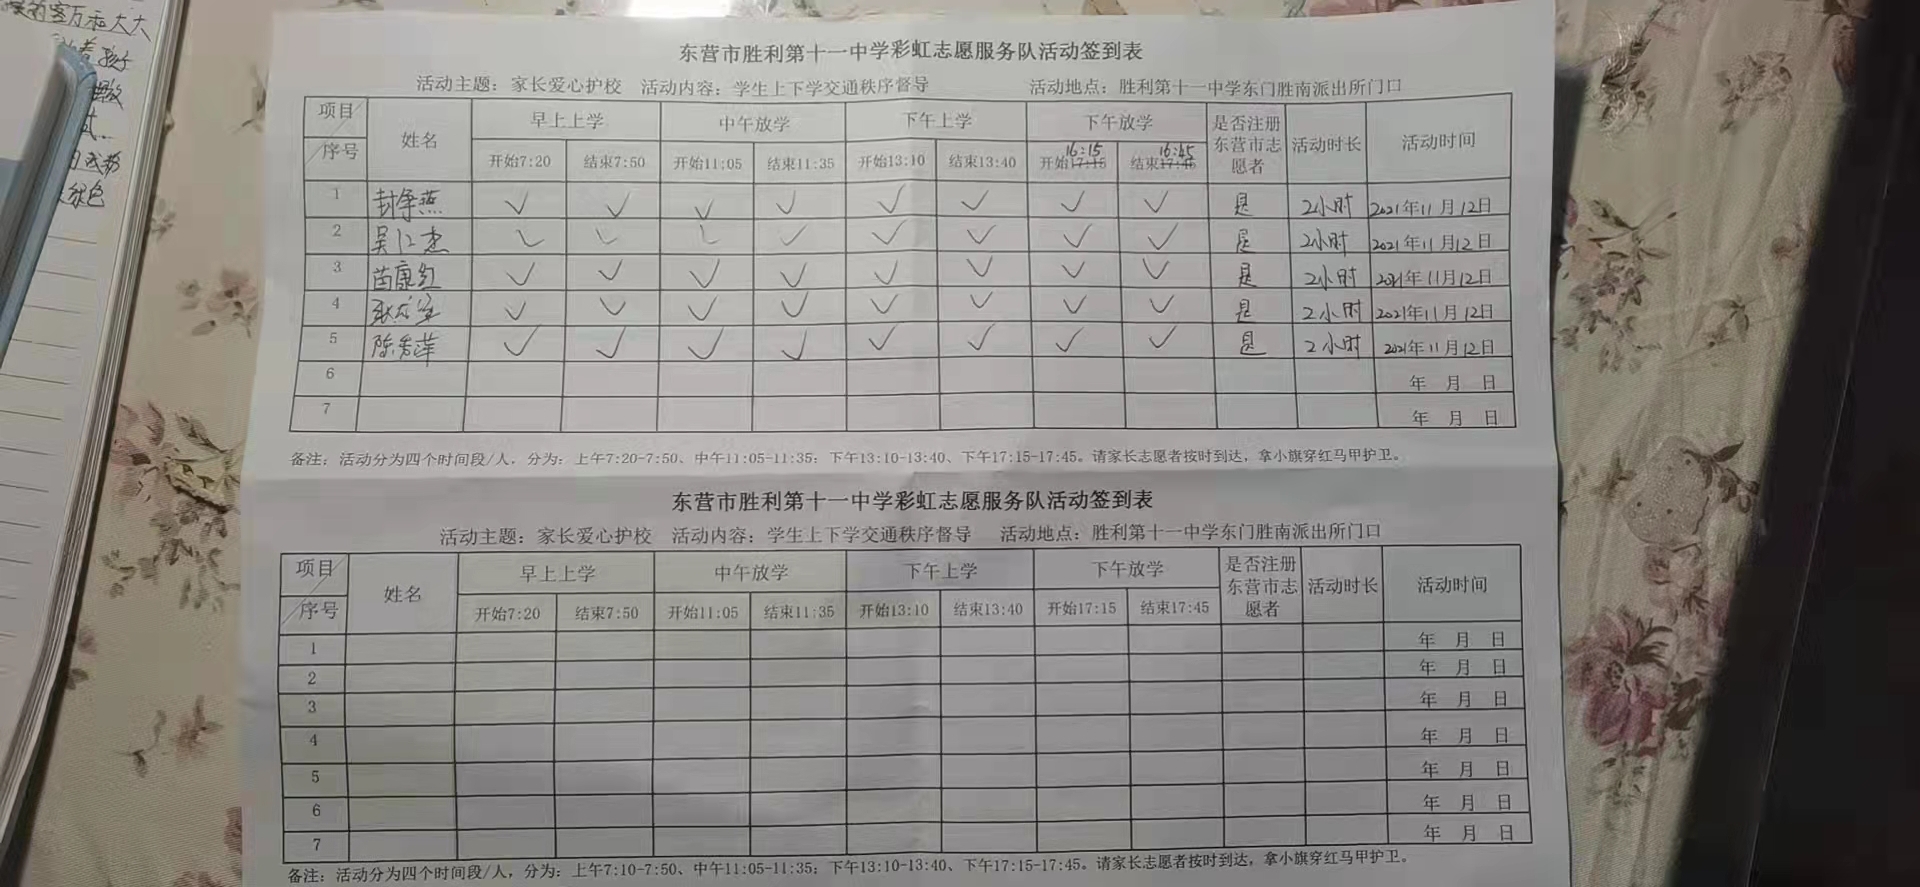 东营市胜利第十一中学彩虹志愿服务队活动签到表
活动主题：家长爱心护校 活动内容：学生上下学交通秩序督导 活动地点：胜利第十一中学东门胜南派出所门口
项目 序号 姓名 早上上学 中午放学 下午上学 下午放学 是否注册东营市志愿者 活动时长 活动时间
16:15 16:45
开始7:20 结束7:50 开始11:05 结束11:35 开始13:10 结束13:40 开始17:15 结束17:45
1 封争燕 ✓ ✓ ✓ ✓ ✓ ✓ ✓ ✓ 是 2小时 2021年11月12日
2 吴江杰 ✓ ✓ ✓ ✓ ✓ ✓ ✓ ✓ 是 2小时 2021年11月12日
3 苗康红 ✓ ✓ ✓ ✓ ✓ ✓ ✓ ✓ 是 2小时 2021年11月12日
4 ✓ ✓ ✓ ✓ ✓ ✓ ✓ ✓ 是 2小时 2021年11月12日
5 陈秀萍 ✓ ✓ ✓ ✓ ✓ ✓ ✓ ✓ 是 2小时 2021年11月12日
6 年 月 日
7 年 月 日
备注：活动分为四个时间段/人，分为：上午7:20-7:50、中午11:05-11:35；下午13:10-13:40、下午17:15-17:45。请家长志愿者按时到达，拿小旗穿红马甲护卫。
东营市胜利第十一中学彩虹志愿服务队活动签到表
活动主题：家长爱心护校 活动内容：学生上下学交通秩序督导 活动地点：胜利第十一中学东门胜南派出所门口
项目 序号 姓名 早上上学 中午放学 下午上学 下午放学 是否注册东营市志愿者 活动时长 活动时间
开始7:20 结束7:50 开始11:05 结束11:35 开始13:10 结束13:40 开始17:15 结束17:45
1 年 月 日
2 年 月 日
3 年 月 日
4 年 月 日
5 年 月 日
6 年 月 日
7 年 月 日
备注：活动分为四个时间段/人，分为：上午7:10-7:50、中午11:05-11:35；下午13:10-13:40、下午17:15-17:45。请家长志愿者按时到达，拿小旗穿红马甲护卫。